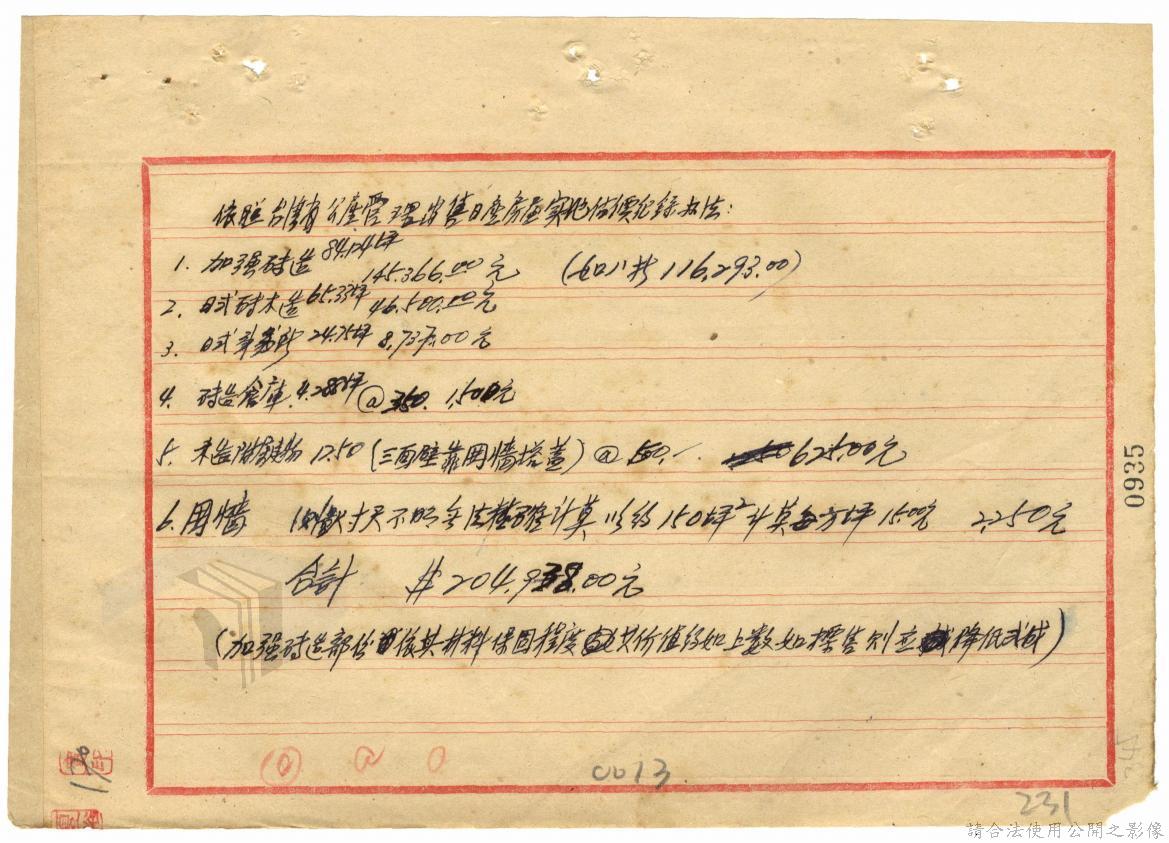 依照台灣省公產管理出售日產房屋實地估價紀錄办法:
1. 加强砖造 84.124坪 145.366.00元 (七口八折 116,293.00)
2. 日式砖木造 65.33坪 46.500.00元
3. 日式事務所 24.75坪 8,737.00元
4. 砖造倉庫 4.288坪 @350. 1,500元
5. 木造附屬物 12.50 (三面壁靠囲墙搭蓋) @50.- 625.00元
6. 囲墙 尺寸不明無法精確計算以約150坪²計算每方坪15.00元 2,250元
合計 $204.938.00元
(加强砖造部份依其材料保固程度其价值約如上數如標售則应降低弍成)
0935
0013
231
請合法使用公開之影像